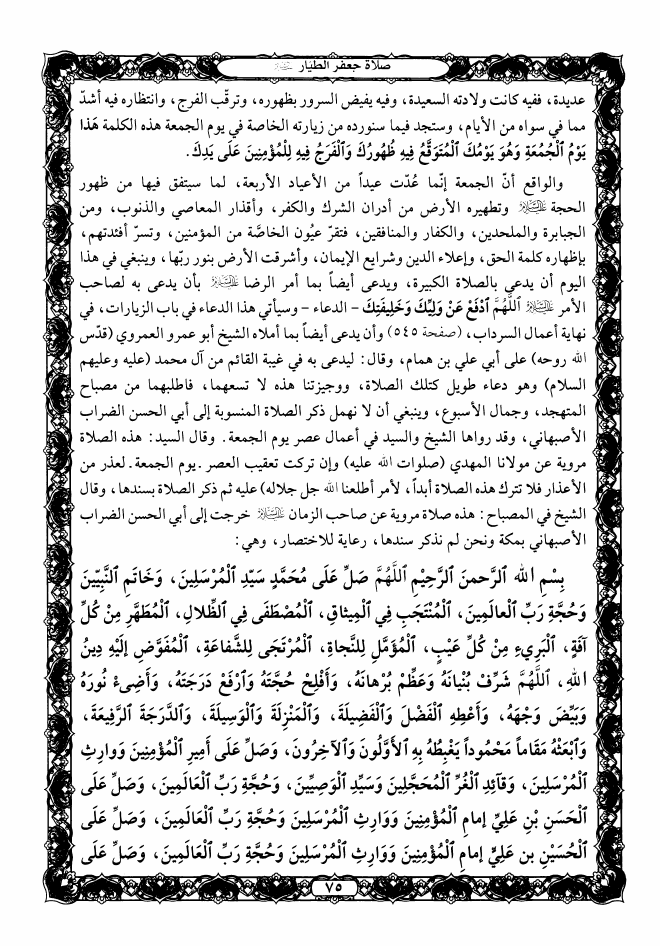 صلاة جعفر الطيار
عديدة، ففيه كانت ولادته السعيدة، وفيه يفيض السرور بظهوره، وترقّب الفرج، وانتظاره فيه أشدّ
مما في سواه من الأيام، وستجد فيما سنورده من زيارته الخاصة في يوم الجمعة هذه الكلمة هَذا
يَوْمُ ٱلْجُمُعَةِ وَهُوَ يَوْمُكَ ٱلْمُتَوَقَّعُ فِيهِ ظُهُورُكَ وَٱلْفَرَجُ فِيهِ لِلْمُؤْمِنِينَ عَلَى يَدِكَ.
والواقع أنّ الجمعة إنّما عُدّت عيداً من الأعياد الأربعة، لما سيتفق فيها من ظهور
الحجة عليه السلام وتطهيره الأرض من أدران الشرك والكفر، وأقذار المعاصي والذنوب، ومن
الجبابرة والملحدين، والكفار والمنافقين، فتقرّ عيُون الخاصَّة من المؤمنين، وتسرّ أفئدتهم،
بإظهاره كلمة الحق، وإعلاء الدين وشرايع الإيمان، وأشرقت الأرض بنور ربّها، وينبغي في هذا
اليوم أن يدعى بالصلاة الكبيرة، ويدعى أيضاً بما أمر الرضا عليه السلام بأن يدعى به لصاحب
الأمر عليه السلام ٱللَّهُمَّ ٱدْفَعْ عَنْ وَلِيِّكَ وَخَلِيفَتِكَ - الدعاء - وسيأتي هذا الدعاء في باب الزيارات، في
نهاية أعمال السرداب، (صفحة ٥٤٥) وأن يدعى أيضاً بما أملاه الشيخ أبو عمرو العمروي (قدّس
الله روحه) على أبي علي بن همام، وقال: ليدعى به في غيبة القائم من آل محمد (عليه وعليهم
السلام) وهو دعاء طويل كتلك الصلاة، ووجيزتنا هذه لا تسعهما، فاطلبهما من مصباح
المتهجد، وجمال الأسبوع، وينبغي أن لا نهمل ذكر الصلاة المنسوبة إلى أبي الحسن الضراب
الأصبهاني، وقد رواها الشيخ والسيد في أعمال عصر يوم الجمعة. وقال السيد: هذه الصلاة
مروية عن مولانا المهدي (صلوات الله عليه) وإن تركت تعقيب العصر.يوم الجمعة.لعذر من
الأعذار فلا تترك هذه الصلاة أبداً، لأمر أطلعنا الله جل جلاله) عليه ثم ذكر الصلاة بسندها، وقال
الشيخ في المصباح: هذه صلاة مروية عن صاحب الزمان عليه السلام خرجت إلى أبي الحسن الضراب
الأصبهاني بمكة ونحن لم نذكر سندها، رعاية للاختصار، وهي:
بِسْمِ ٱللهِ ٱلرَّحمنِ ٱلرَّحِيْمِ ٱللَّهُمَّ صَلِّ عَلَى مُحَمَّدٍ سَيِّدِ ٱلْمُرْسَلِينَ، وَخَاتَمِ ٱلنَّبِيِّينَ
وَحُجَّةِ رَبِّ ٱلْعالَمِينَ، ٱلْمُنْتَجَبِ فِي ٱلْمِيثاقِ، ٱلْمُصْطَفَى فِي ٱلظِّلالِ، ٱلْمُطَهَّرِ مِنْ كُلِّ
آفَةٍ، ٱلْبَرِيءِ مِنْ كُلِّ عَيْبٍ، ٱلْمُؤَمَّلِ لِلنَّجاةِ، ٱلْمُرْتَجَى لِلشَّفاعَةِ، ٱلْمُفَوَّضِ إِلَيْهِ دِينُ
ٱللهِ، ٱللَّهُمَّ شَرِّفْ بُنْيَانَهُ وَعَظِّمْ بُرْهانَهُ، وَأَفْلِحْ حُجَّتَهُ وَٱرْفَعْ دَرَجَتَهُ، وَأَضِىءْ نُورَهُ
وَبَيِّضْ وَجْهَهُ، وَأَعْطِهِ ٱلْفَضْلَ وَٱلْفَضِيلَةَ، وَٱلْمَنْزِلَةَ وَٱلْوَسِيلَةَ، وَٱلدَّرَجَةَ ٱلرَّفِيعَةَ،
وَٱبْعَثْهُ مَقَاماً مَحْمُوداً يَغْبِطُهُ بِهِ ٱلأَوَّلُونَ وَٱلآخِرُونَ، وَصَلِّ عَلَى أَمِيرِ ٱلْمُؤْمِنِينَ وَوارِثِ
ٱلْمُرْسَلِينَ، وَقآئِدِ ٱلْغُرِّ ٱلْمُحَجَّلِينَ وَسَيِّدِ ٱلْوَصِيِّينَ، وَحُجَّةِ رَبِّ ٱلْعَالَمِينَ، وَصَلِّ عَلَى
ٱلْحَسَنِ بْنِ عَلِيٍّ إمامِ ٱلْمُؤْمِنِينَ وَوَارِثِ ٱلْمُرْسَلِينَ وَحُجَّةِ رَبِّ ٱلْعَالَمِينَ، وَصَلِّ عَلَى
ٱلْحُسَيْنِ بن عَلِيٍّ إمامِ ٱلْمُؤْمِنِينَ وَوَارِثِ ٱلْمُرْسَلِينَ وَحُجَّةِ رَبِّ ٱلْعَالَمِينَ، وَصَلِّ عَلَى
٧٥